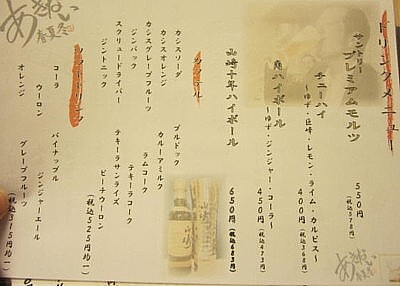 ドリンクメニュー
サントリー
プレミアムモルツ
550円
(税込578円)
チューハイ
〜ゆず・巨峰・レモン・ライム・カルピス〜
400円
ハイボール
〜ゆず・ジンジャー・コーラ〜
450円
(税込473円)
山崎十年ハイボール
650円
(税込683円)
カクテル
カシスソーダ
カシスオレンジ
カシスグレープフルーツ
ジンバック
スクリュードライバー
ジントニック
ブルドック
カルーアミルク
ラムコーク
テキーラコーク
テキーラサンライズ
ピーチウーロン
(税込525円均一)
ソフトドリンク
コーラ
ウーロン
オレンジ
パイナップル
ジンジャーエール
グレープフルーツ
(税込315円均一)
あきない
春夏冬
山崎
あきない
春夏冬